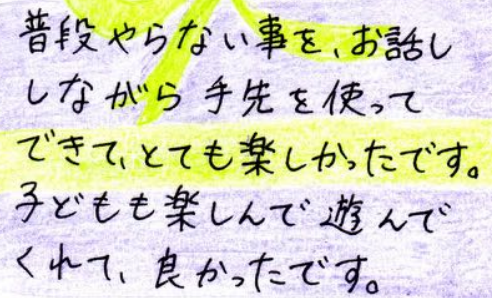 普段やらない事を、お話し
しながら手先を使って
できて、とても楽しかったです。
子どもも楽しんで遊んで
くれて、良かったです。